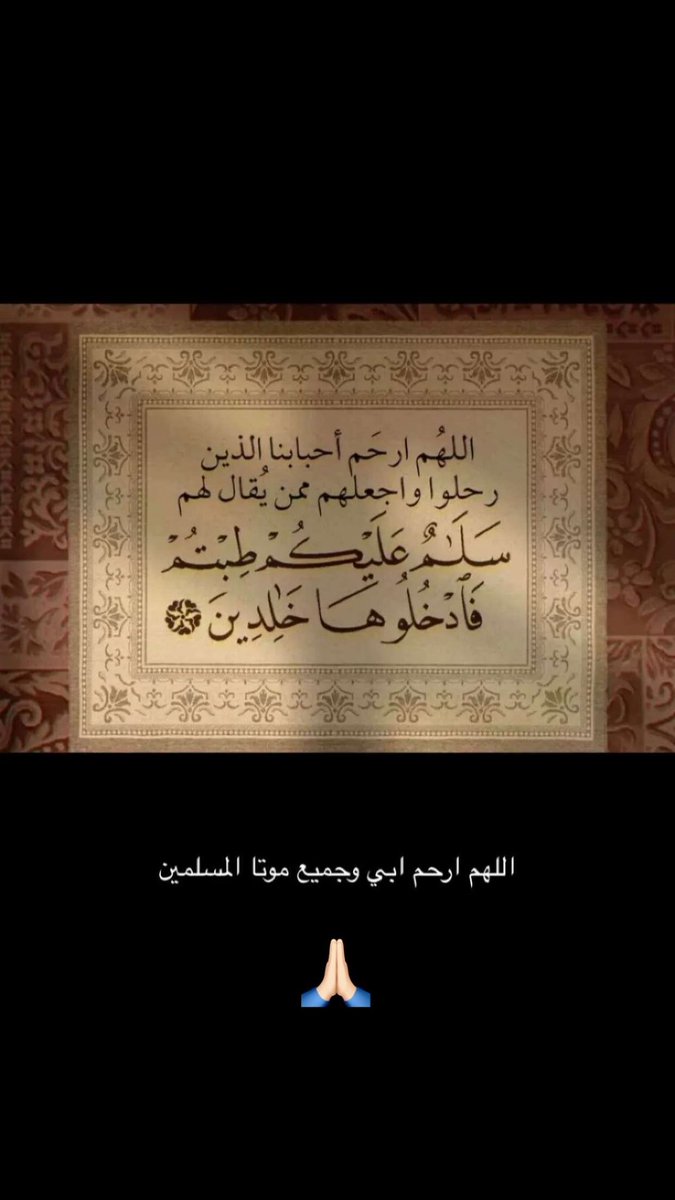 اللهُم ارحَم أحبابنا الذين
رحلوا واجعلهم ممن يُقال لهم
سَلَٰمٌ عَلَيْكُمْ طِبْتُمْ
فَٱدْخُلُوهَا خَٰلِدِينَ
اللهم ارحم ابي وجميع موتا المسلمين